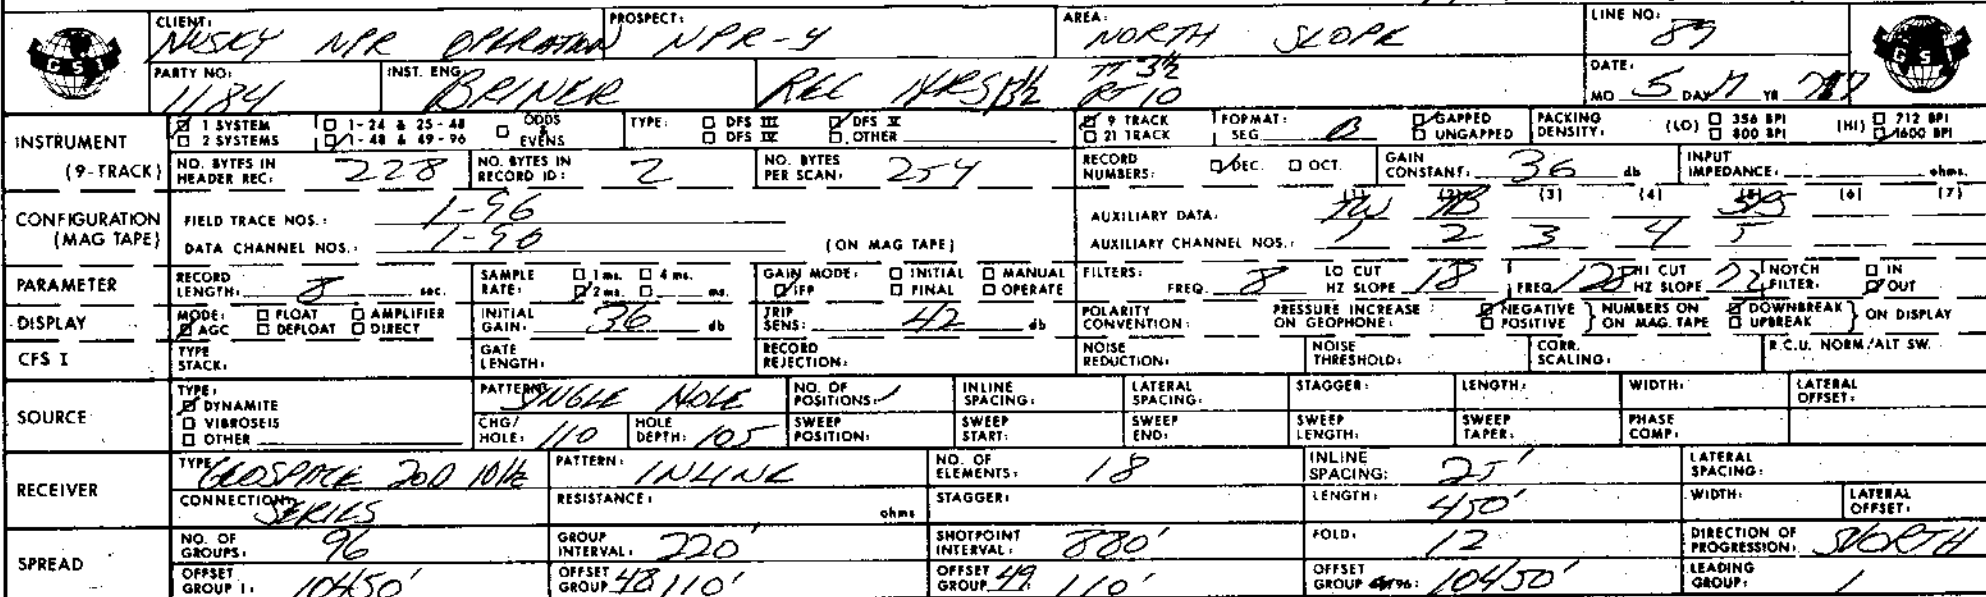 CLIENT: HUSKY NPR OPERATION PROSPECT: NPR-4 AREA: NORTH SLOPE LINE NO: 89
GSI GSI
PARTY NO: 1184 INST. ENG. BRINER REC HRS TT 3½ RT 10 DATE: MO 5 DAY 17 YR
INSTRUMENT (9-TRACK) ☑ 1 SYSTEM ☐ 1-24 & 25-48 ☐ ODDS & EVENS TYPE: ☐ DFS III ☑ DFS V ☑ 9 TRACK FORMAT: SEG B ☑ GAPPED PACKING DENSITY: (LO) ☐ 356 BPI (HI) ☐ 712 BPI
☐ 2 SYSTEMS ☑ 1-48 & 49-96 ☐ DFS IV ☐ OTHER ☐ 21 TRACK ☐ UNGAPPED ☐ 800 BPI ☑ 1600 BPI
NO. BYTES IN HEADER REC: 228 NO. BYTES IN RECORD ID: 2 NO. BYTES PER SCAN: 254 RECORD NUMBERS: ☑ DEC. ☐ OCT. GAIN CONSTANT: 36 db INPUT IMPEDANCE: ohms.
(1) (2) (3) (4) (5) (6) (7)
CONFIGURATION (MAG TAPE) FIELD TRACE NOS.: 1-96 AUXILIARY DATA: TB
DATA CHANNEL NOS.: 1-96 (ON MAG TAPE) AUXILIARY CHANNEL NOS.: 1 2 3 4 5
PARAMETER RECORD LENGTH: 8 sec. SAMPLE RATE: ☐ 1 ms. ☐ 4 ms. ☑ 2 ms. ☐ ms. GAIN MODE: ☐ INITIAL ☐ MANUAL ☑ IFP ☐ FINAL ☐ OPERATE FILTERS: FREQ. 8 LO CUT HZ SLOPE 18 FREQ 128 HI CUT HZ SLOPE 72 NOTCH FILTER: ☐ IN ☑ OUT
DISPLAY MODE: ☐ FLOAT ☐ AMPLIFIER ☑ AGC ☐ DEFLOAT ☐ DIRECT INITIAL GAIN: 36 db TRIP SENS: 42 db POLARITY CONVENTION: PRESSURE INCREASE ON GEOPHONE: ☑ NEGATIVE ☐ POSITIVE } NUMBERS ON ON MAG. TAPE ☑ DOWNBREAK ☐ UPBREAK } ON DISPLAY
CFS I TYPE STACK: GATE LENGTH: RECORD REJECTION: NOISE REDUCTION: NOISE THRESHOLD: CORR. SCALING: R.C.U. NORM/ALT SW.
SOURCE TYPE: ☑ DYNAMITE ☐ VIBROSEIS ☐ OTHER PATTERN: SINGLE HOLE NO. OF POSITIONS: 1 INLINE SPACING: LATERAL SPACING: STAGGER: LENGTH: WIDTH: LATERAL OFFSET:
CHG/HOLE: 110 HOLE DEPTH: 105 SWEEP POSITION: SWEEP START: SWEEP END: SWEEP LENGTH: SWEEP TAPER: PHASE COMP:
RECEIVER TYPE GEOSPACE 20D 10Hz PATTERN: INLINE NO. OF ELEMENTS: 18 INLINE SPACING: 25' LATERAL SPACING:
CONNECTION: SERIES RESISTANCE: ohms STAGGER: LENGTH: 450' WIDTH: LATERAL OFFSET:
SPREAD NO. OF GROUPS: 96 GROUP INTERVAL: 220' SHOTPOINT INTERVAL: 880' FOLD: 12 DIRECTION OF PROGRESSION: NORTH
OFFSET GROUP 1: 10450' OFFSET GROUP 48 110' OFFSET GROUP 49 110' OFFSET GROUP 96: 10450' LEADING GROUP: 1